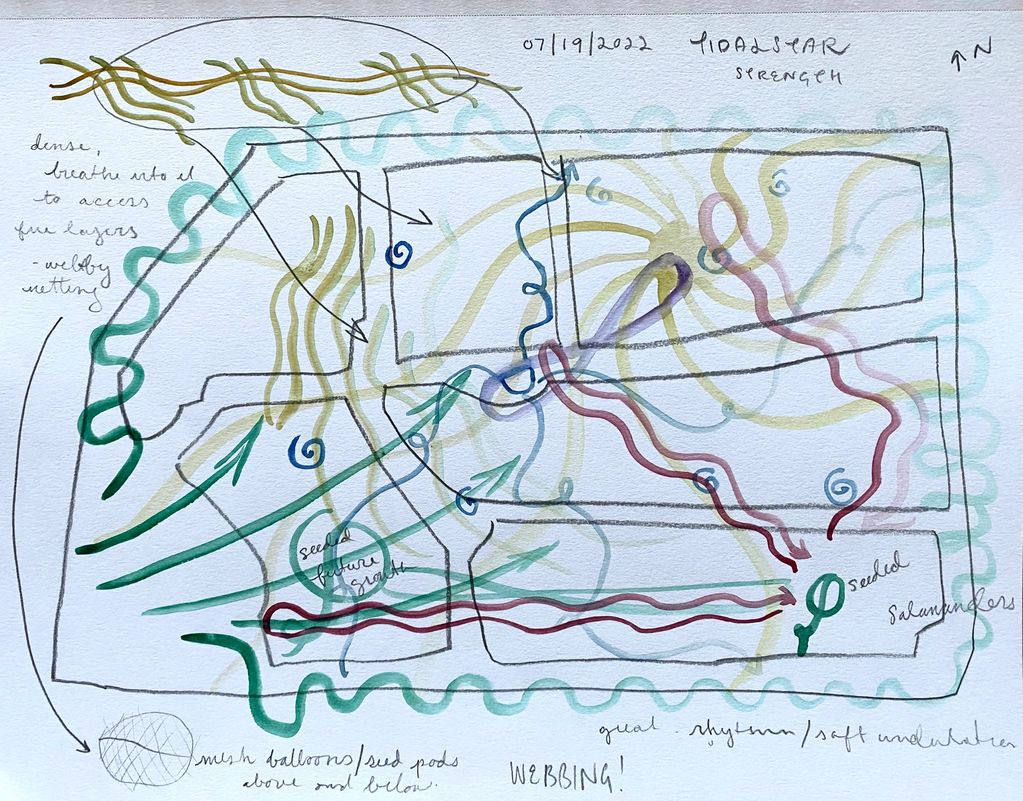 07/19/2022 TIDALSTAR
STRENGTH
↑ N
dense,
breathe into it
to access
fine layers
- webby
netting
seeded
future
growth
seeded
Salamanders
great rhythm/soft undulation
mesh balloons/seed pods
above and below.
WEBBING!